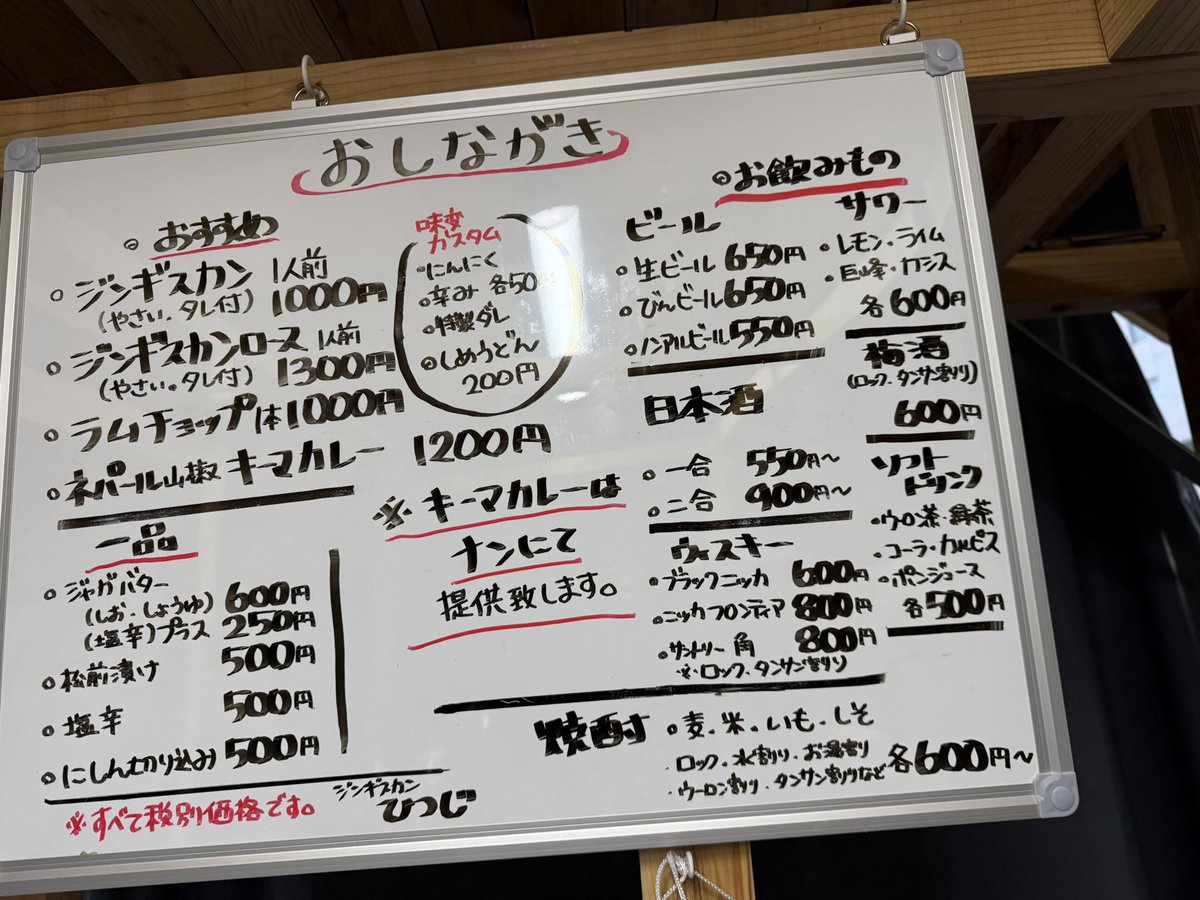 おしながき
◎おすすめ
○ジンギスカン 1人前
(やさい。タレ付) 1000円
○ジンギスカンロース 1人前
(やさい。タレ付) 1300円
○ラムチョップ 1本 1000円
○ネパール山椒 キーマカレー 1200円
味変
カスタム
○にんにく
○辛み 各50円
○特製ダレ
○しめうどん
200円
※キーマカレーは
ナンにて
提供致します。
一品
○ジャガバター
(しお・しょうゆ) 600円
(塩辛)プラス 250円
○松前漬け 500円
○塩辛 500円
○にしん切り込み 500円
※すべて税別価格です。
ジンギスカン
ひつじ
◎お飲みもの
ビール
○生ビール 650円
○びんビール 650円
○ノンアルビール 550円
日本酒
○一合 550円～
○二合 900円～
ウィスキー
○ブラックニッカ 600円
○ニッカフロンティア 800円
○サントリー角 800円
※ロック、タンサン割り
サワー
○レモン・ライム
○巨峰・カシス
各600円
梅酒
(ロック、タンサン割り)
600円
ソフト
ドリンク
○ウーロン茶・緑茶
○コーラ・カルピス
○ポンジュース
各500円
焼酎
○麦・米・いも・しそ
○ロック・水割り・お湯割り
・ウーロン割り・タンサン割りなど
各600円～